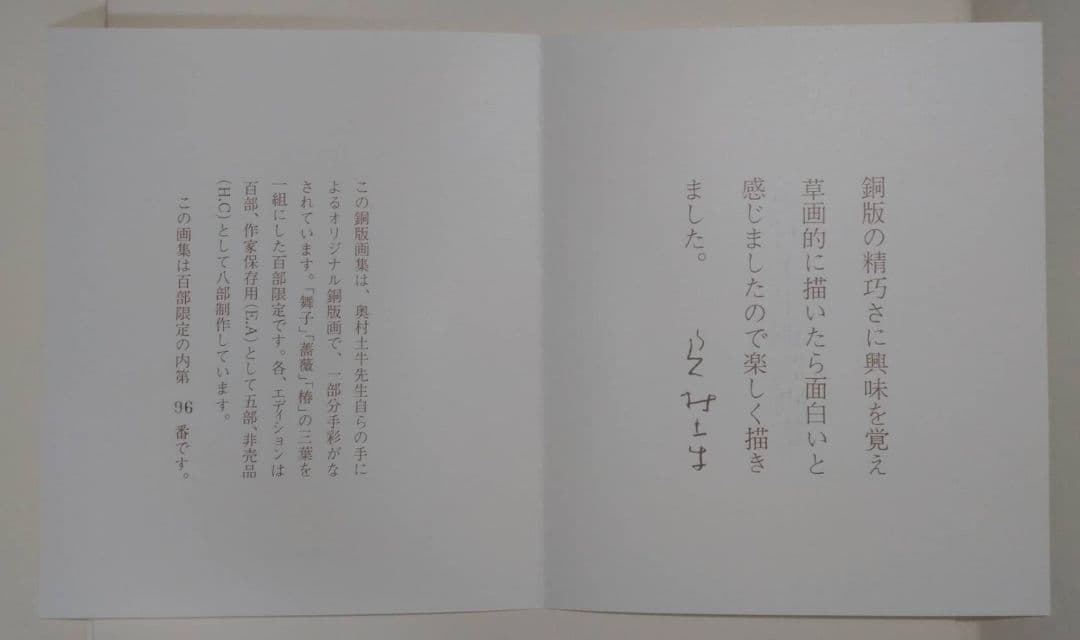 銅版の精巧さに興味を覚え
草画的に描いたら面白いと
感じましたので楽しく描き
ました。
奥村土牛
この銅版画集は、奥村土牛先生自らの手に
よるオリジナル銅版画で、一部分手彩がな
されています。「舞子」「薔薇」「椿」の三葉を
一組にした百部限定です。各、エディションは
百部、作家保存用(E.A)として五部、非売品
(H.C)として八部制作しています。
この画集は百部限定の内第 96 番です。